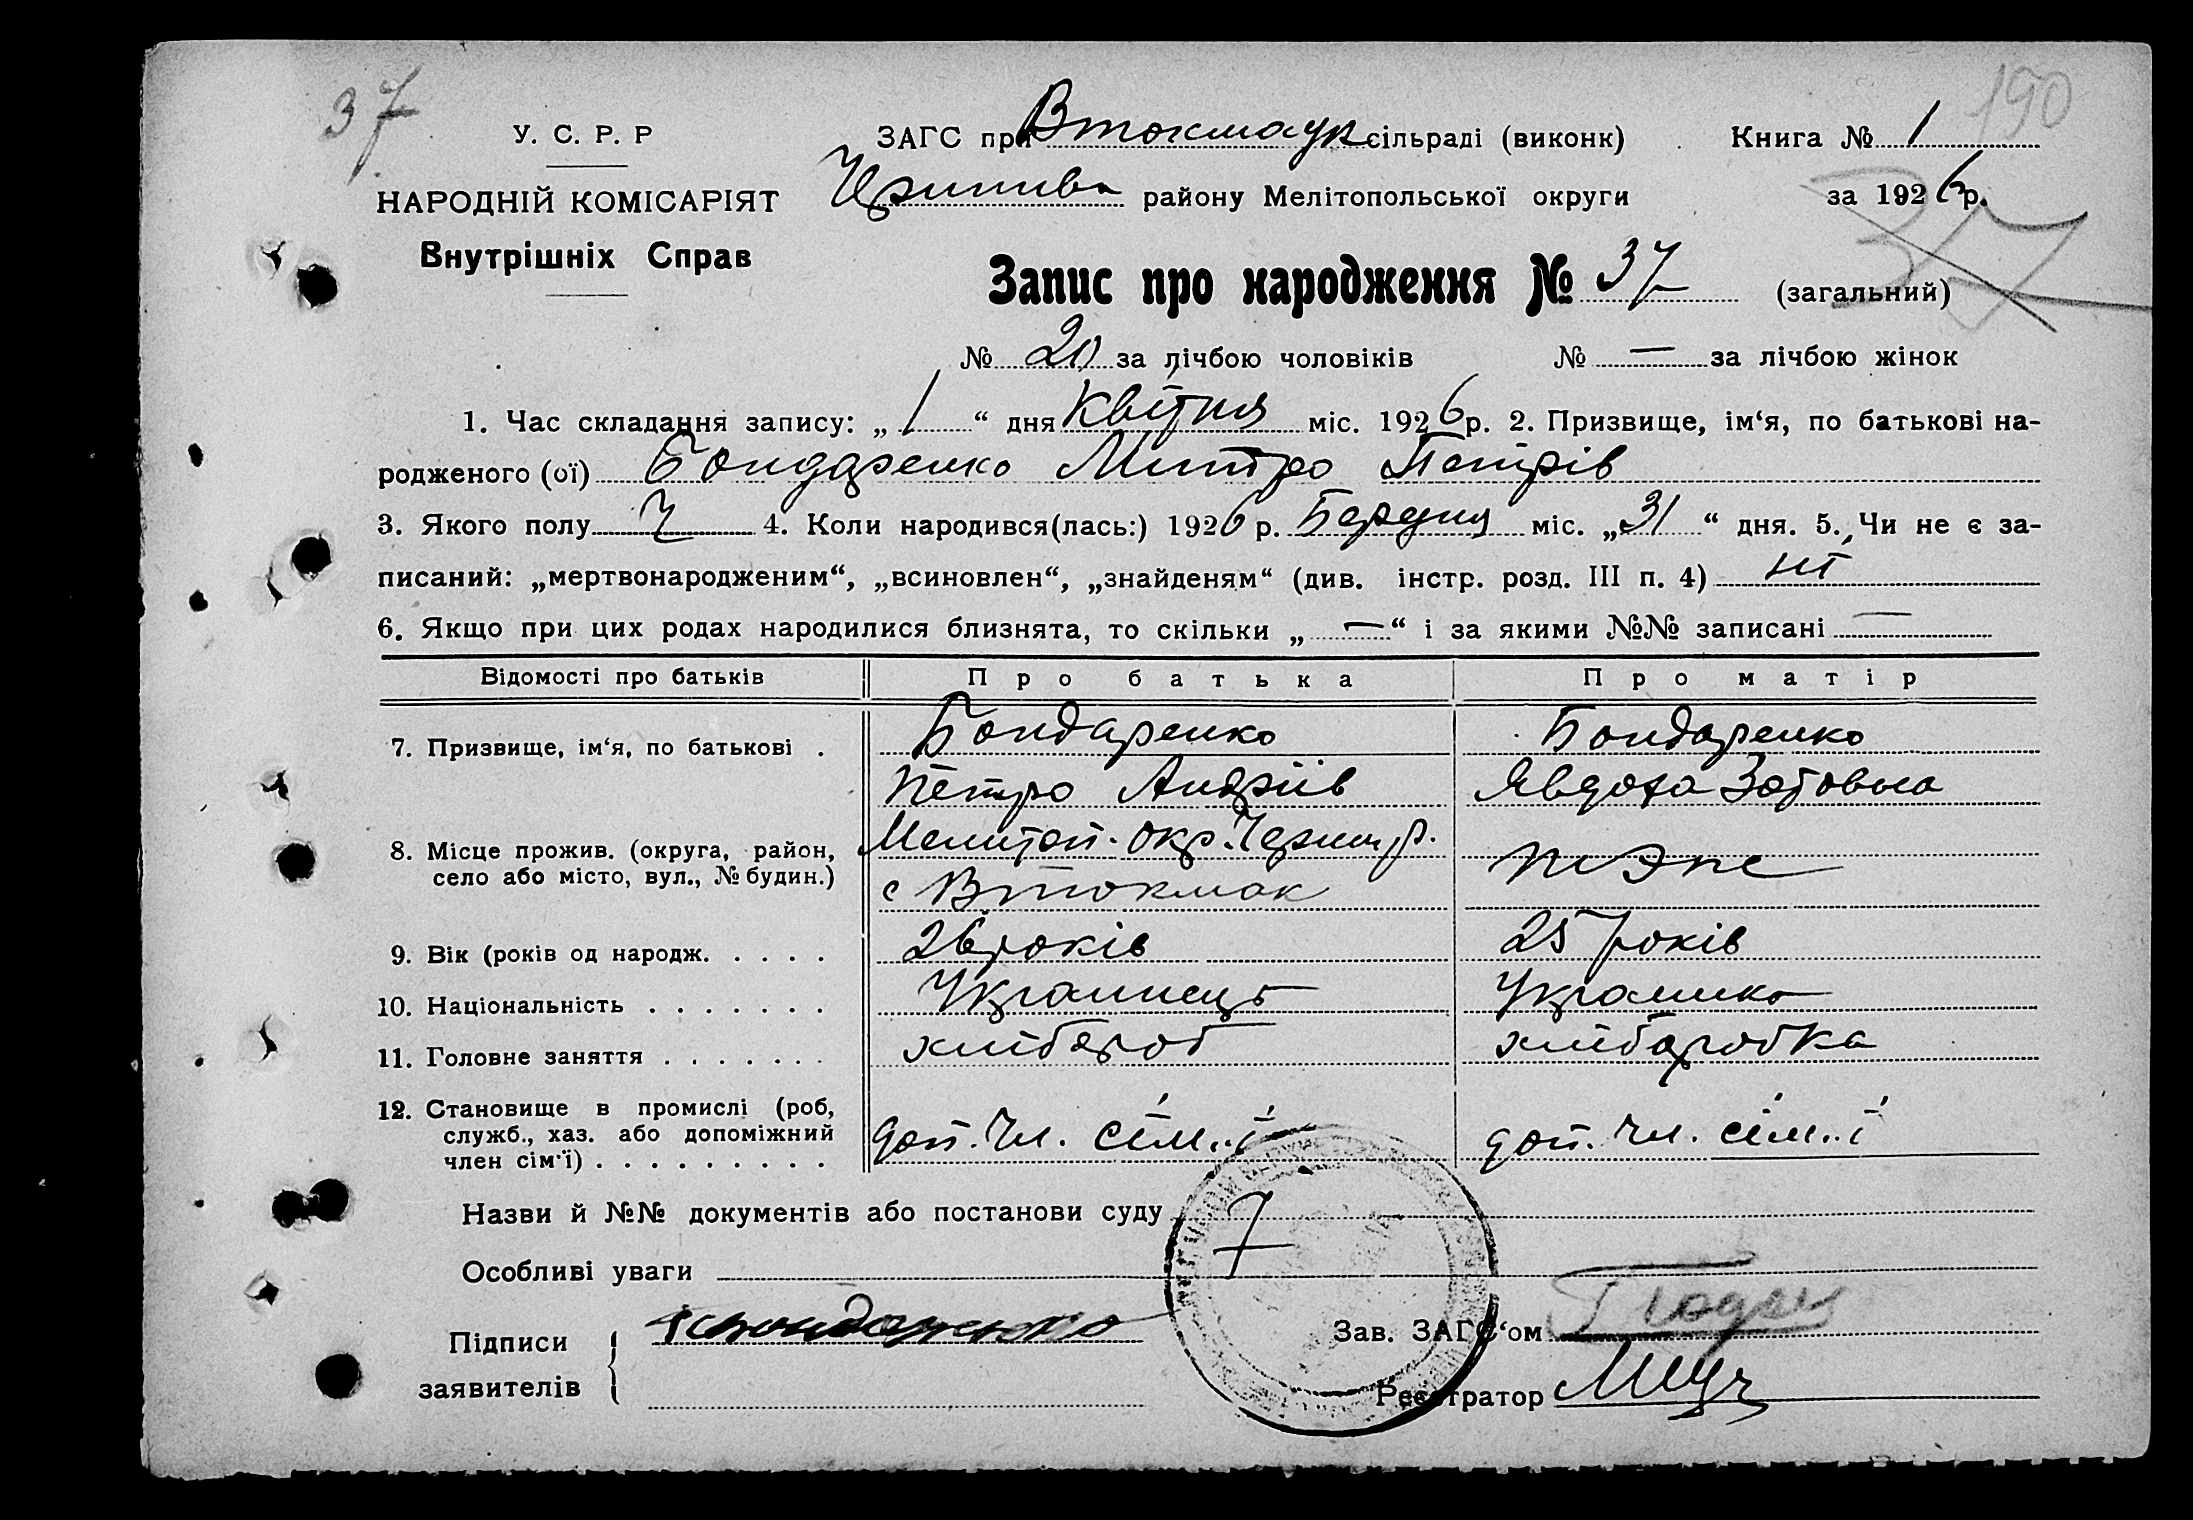 37 190
У. С. Р. Р ЗАГС при Втокмацк сільраді (виконк) Книга № 1
НАРОДНІЙ КОМІСАРІЯТ району Мелітопольської округи за 1926 р.
Внутрішніх Справ 37
Запис про народження № 37 (загальний)
№ 20 за лічбою чоловіків № — за лічбою жінок
1. Час складання запису: „1“ дня Квітня міс. 1926 р. 2. Призвище, ім‘я, по батькові на-
родженого (ої) Бондаренко Митро Петрів
3. Якого полу Ч 4. Коли народився(лась:) 1926 р. Березня міс. „31“ дня. 5. Чи не є за-
писаний: „мертвонародженим“, „всиновлен“, „знайденям“ (див. інстр. розд. III п. 4) ні
6. Якщо при цих родах народилися близнята, то скільки „—“ і за якими №№ записані —
Відомості про батьків Про батька Про матір
7. Призвище, ім‘я, по батькові . Бондаренко Бондаренко
Петро Андріїв Явдоха Зотовна
8. Місце прожив. (округа, район, Мелитоп. окр. р.
село або місто, вул., № будин.) с Втокмак тэпе
9. Вік (років од народж. . . . . 26 років 25 років
10. Національність . . . . . . . Украинець Украинка
11. Головне заняття . . . . . . . хлибороб хлиборобка
12. Становище в промислі (роб,
служб., хаз. або допоміжний доп. чл. сім'ї доп. чл. сім'ї
член сім'ї) . . . . . . . . .
Назви й №№ документів або постанови суду
Особливі уваги
Підписи Бондаренко Зав. ЗАГС‘ом
заявителів Реєстратор